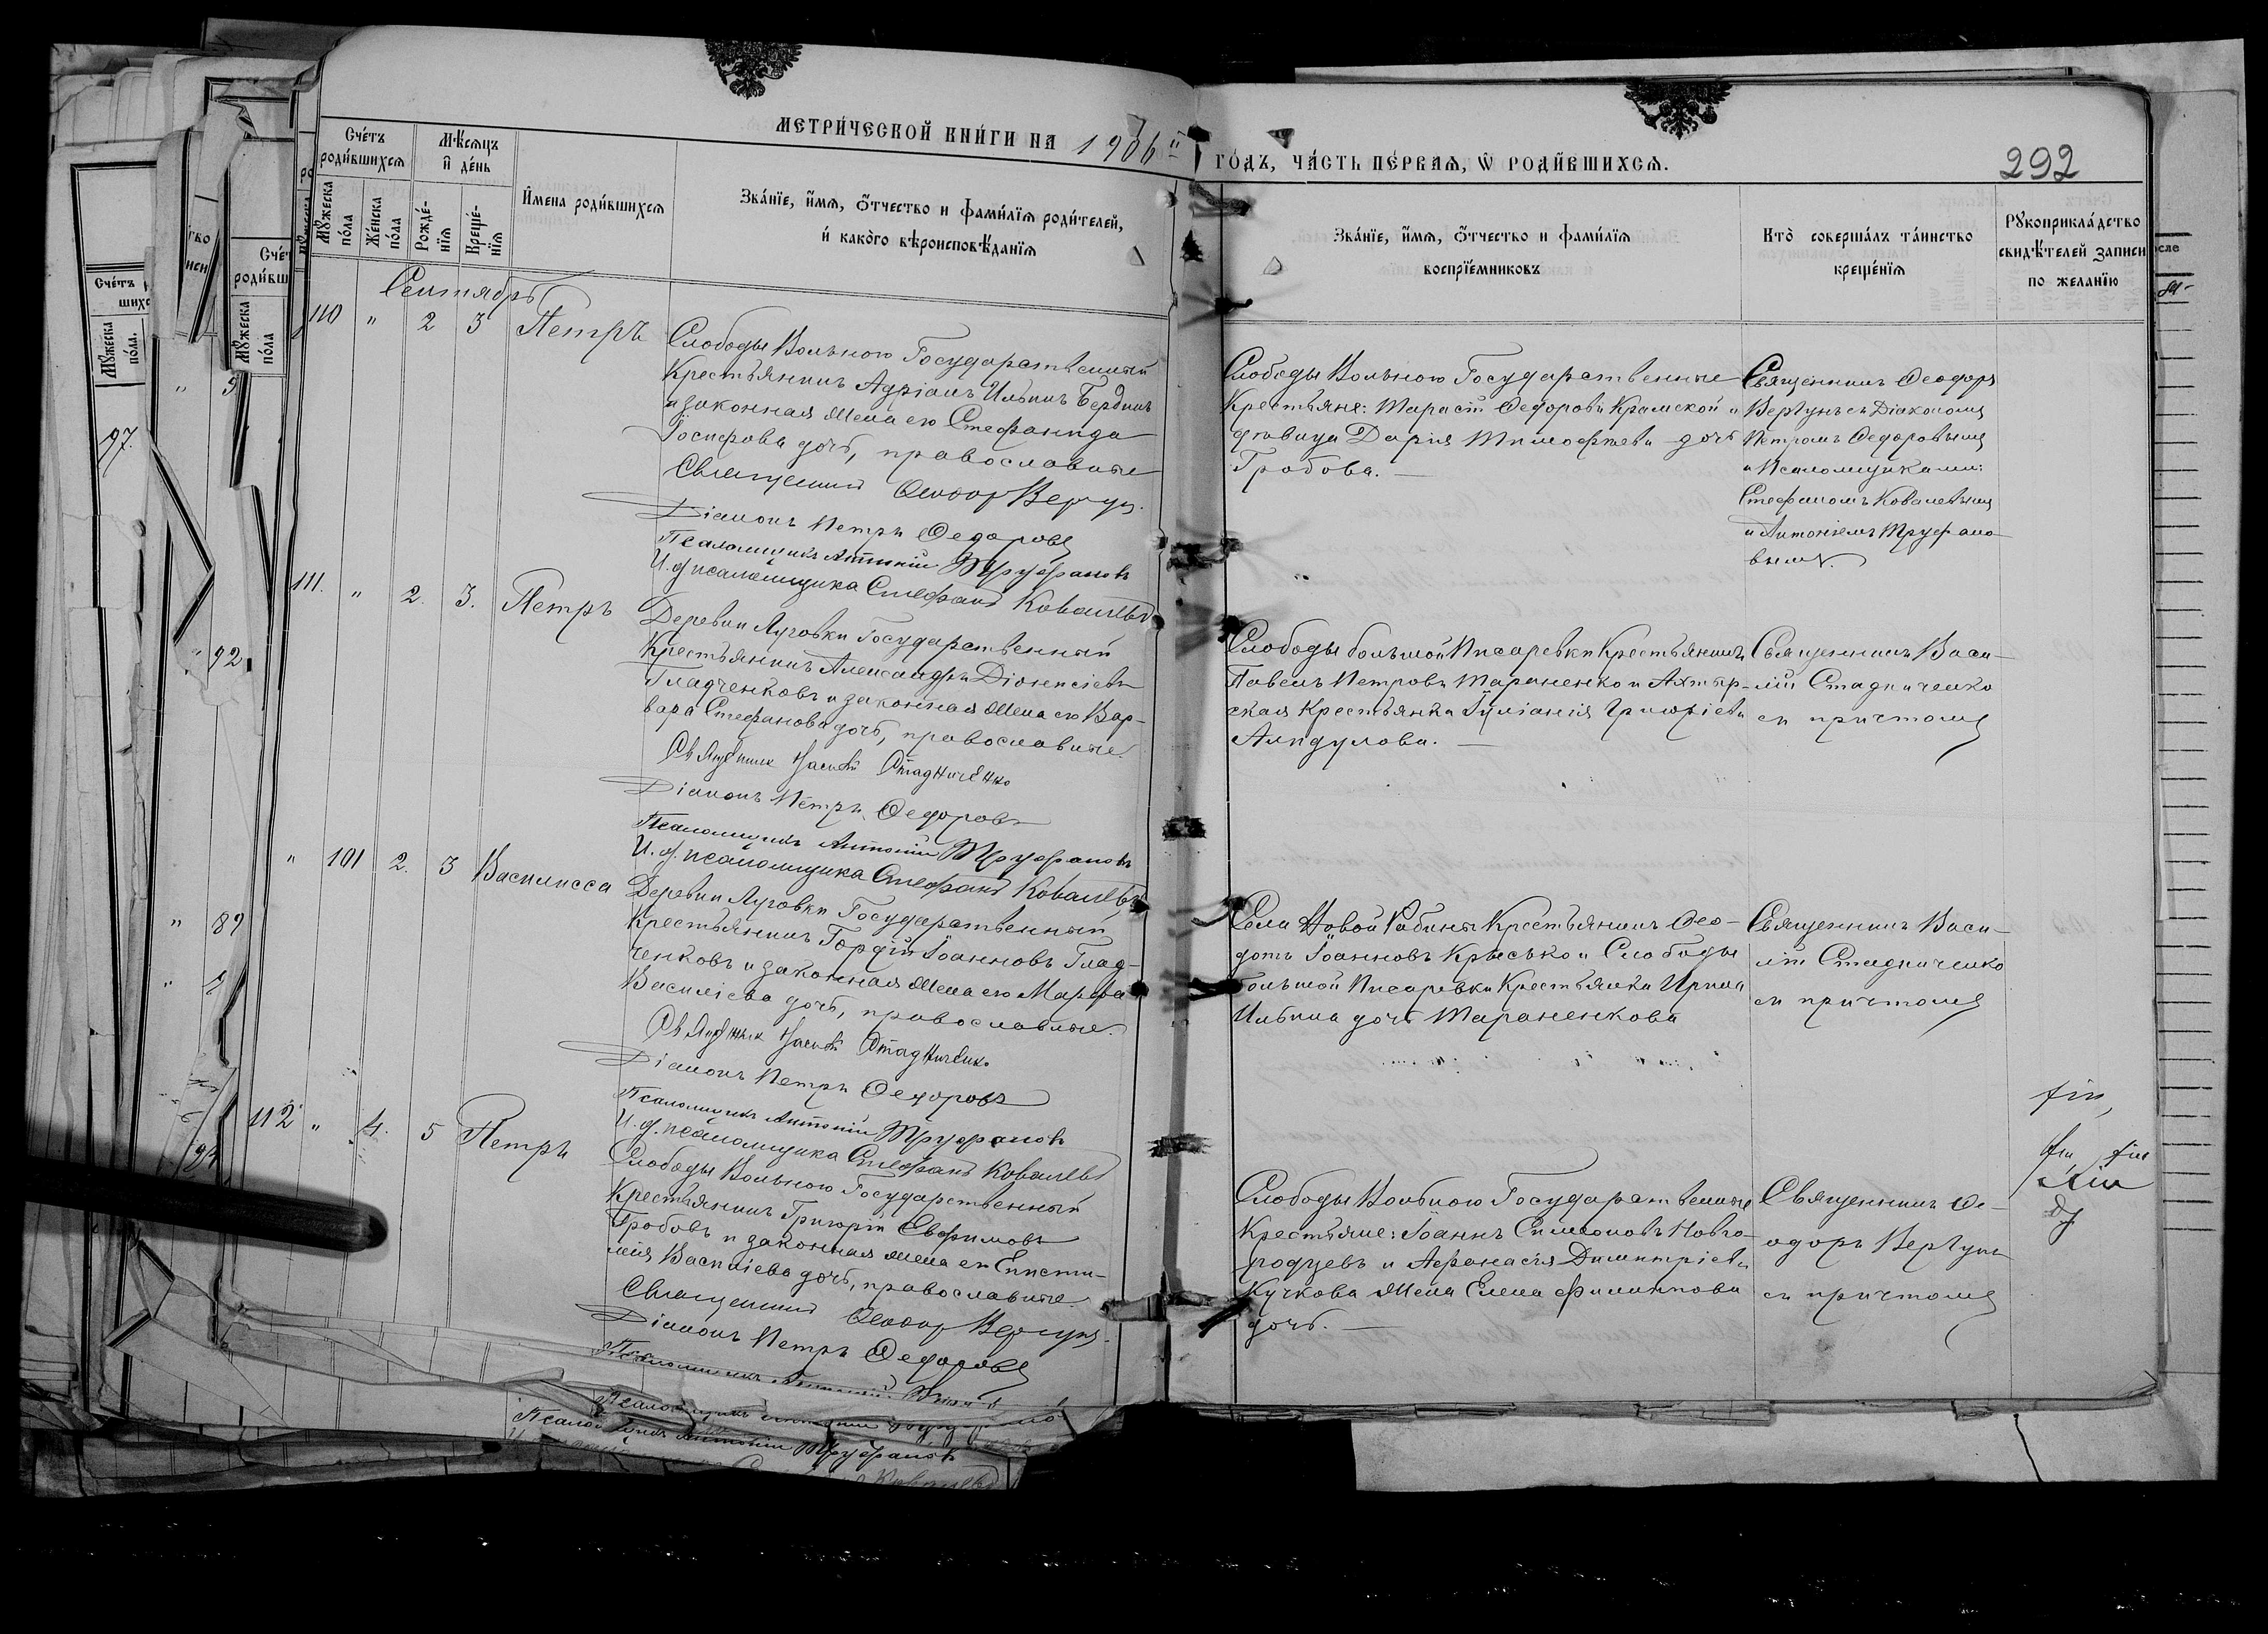 МЕТРИ́ЧЕСКОЙ КНИ́ГИ НА 1906й
ГО́ДЪ, ЧА́СТЬ ПЕ́РВАѦ, Ѡ РОДИ́ВШИХСѦ.
292
Сче́тъ роди́вшихсѧ
Мѣ́сѧцъ и҆ де́нь
Мꙋ́жеска по́ла
Же́нска по́ла
Рожде́-нїѧ
Креще́-нїѧ
И҆мена роди́вшихсѧ
Зва́нїе, и҆́мѧ, ѻ҆́тчество и фами́лїѧ роди́телей,
и҆ како́гѡ вѣроисповѣ́данїѧ
Зва́нїе, и҆́мѧ, ѻ҆́тчество и фами́лїѧ
воспрїе́мниковъ
Кто̀ соверша́лъ та́инство
креще́нїѧ
Рꙋкоприкла́дство
свидѣ́телей записи
по жела́нїю
Сентябрь
110 " 2 3 Петръ
Слободы Вольного Государственный
Крестьянинъ Адріанъ Ильинъ Бердинъ
и законная жена его Стефанида
Іосифова дочь, православные
Священникъ Ѳеодоръ Вергунъ.
Діаконъ Петръ Ѳедоровъ
Псаломщикъ Антоній Труфановъ
И. д. псаломщика Стефанъ Ковалевъ
Слободы Вольного Государственные
Крестьяне: Тарасій Ѳедоровъ Крамской и
девица Дарія Тимофеева дочь
Гробова.
Священникъ Ѳеодоръ
Вергунъ съ Діакономъ
Петромъ Ѳедоровымъ
и Псаломщиками:
Стефаномъ Ковалевымъ
и Антоніемъ Труфано-
вымъ.
111. " 2. 3. Петръ
Деревни Луговки Государственный
Крестьянинъ Александръ Діонисіевъ
Гладченковъ и законная жена его Вар-
вара Стефанова дочь, православные.
Священникъ Василій Стадниченко
Діаконъ Петръ Ѳедоровъ
Псаломщикъ Антоній Труфановъ
И. д. псаломщика Стефанъ Ковалевъ
Слободы большой Писаревки Крестьянинъ
Павелъ Петровъ Тараненко и Ахтыр-
ская Крестьянка Іуліанія Григоріева
Алидулова.
Священникъ Васи-
лій Стадниченко
съ причтомъ
" 101 2. 3 Василисса
Деревни Луговки Государственный
Крестьянинъ Гордій Іоанновъ Глад-
ченковъ и законная жена его Марфа
Василіева дочь, православные.
Священникъ Василій Стадниченко
Діаконъ Петръ Ѳедоровъ
Псаломщикъ Антоній Труфановъ
И. д. псаломщика Стефанъ Ковалевъ
Села Новой Рябины Крестьянинъ Ѳео-
дотъ Іоанновъ Крысько и Слободы
Большой Писаревки Крестьянка Ирина
Ильина дочь Тараненкова
Священникъ Васи-
лій Стадниченко
съ причтомъ
112 " 4. 5 Петръ
Слободы Вольного Государственный
Крестьянинъ Григорій Евфимовъ
Гробовъ и законная жена его Еписти-
мія Василіева дочь, православные.
Священникъ Ѳеодоръ Вергунъ.
Діаконъ Петръ Ѳедоровъ
Слободы Вольного Государственные
Крестьяне: Іоаннъ Симеоновъ Новго-
родцевъ и Афанасія Димитріева
Кучкова жена Елена Филиппова
дочь.
Священникъ Ѳе-
одоръ Вергунъ
съ причтомъ
Псаломщикъ Антоній Труфановъ
97.
92
89
94